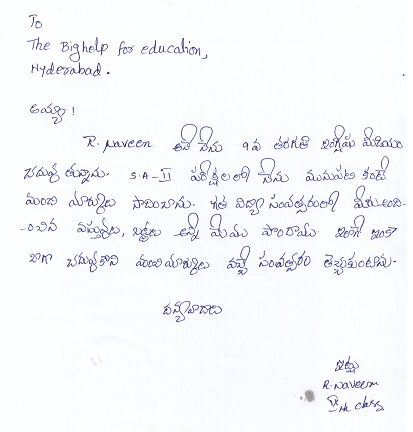 To
The Bighelp for education,
Hyderabad.
అయ్యా !
R. Naveen అనే నేను 9వ తరగతి ఇంగ్లీషు మీడియం
చదువు తున్నాను. S.A-II పరీక్షలలో నేను మునుపటి కంటే
మంచి మార్కులు సాదించాను. గత విద్యా సంవత్సరంలో మీరు అంది-
-ంచిన వస్తువులు, బట్టలు అన్ని మేము పొందాము. ఇలాగే ఇంకా
బాగా చదువుకొని మంచిమార్కులు వచ్చే సంవత్సరం తెచ్చుకుంటాను.
ధన్యవాదాలు
ఇట్లు
R. Naveen
IX th class